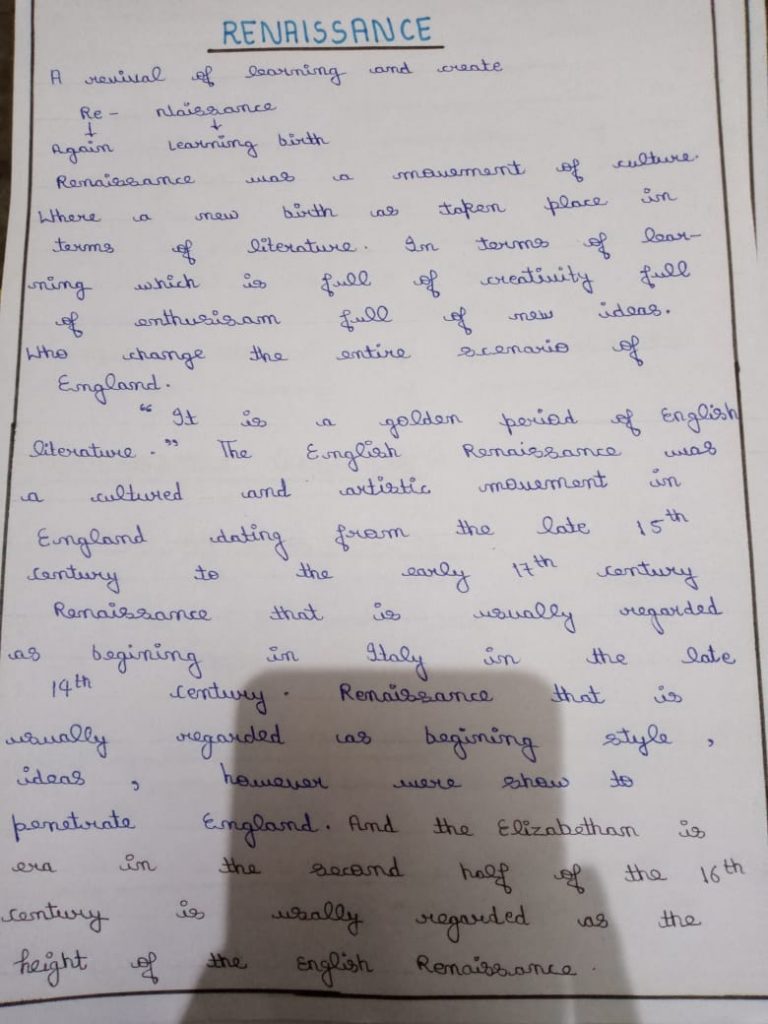 RENAISSANCE
A revival of learning and create
Re - Naissance
↓ ↓
Again Learning birth
Renaissance was a movement of culture.
Where a new birth as taken place in
terms of literature. In terms of lear-
ning which is full of creativity full
of enthusisam full of new ideas.
Who change the entire scenario of
England.
"It is a golden period of English
literature." The English Renaissance was
a cultured and artistic movement in
England dating from the late 15th
century to the early 17th century
Renaissance that is usually regarded
as begining in Italy in the late
14th century. Renaissance that is
usually regarded as begining style,
ideas, however were show to
penetrate England. And the Elizabethan is
era in the second half of the 16th
century is usally regarded as the
height of the English Renaissance.